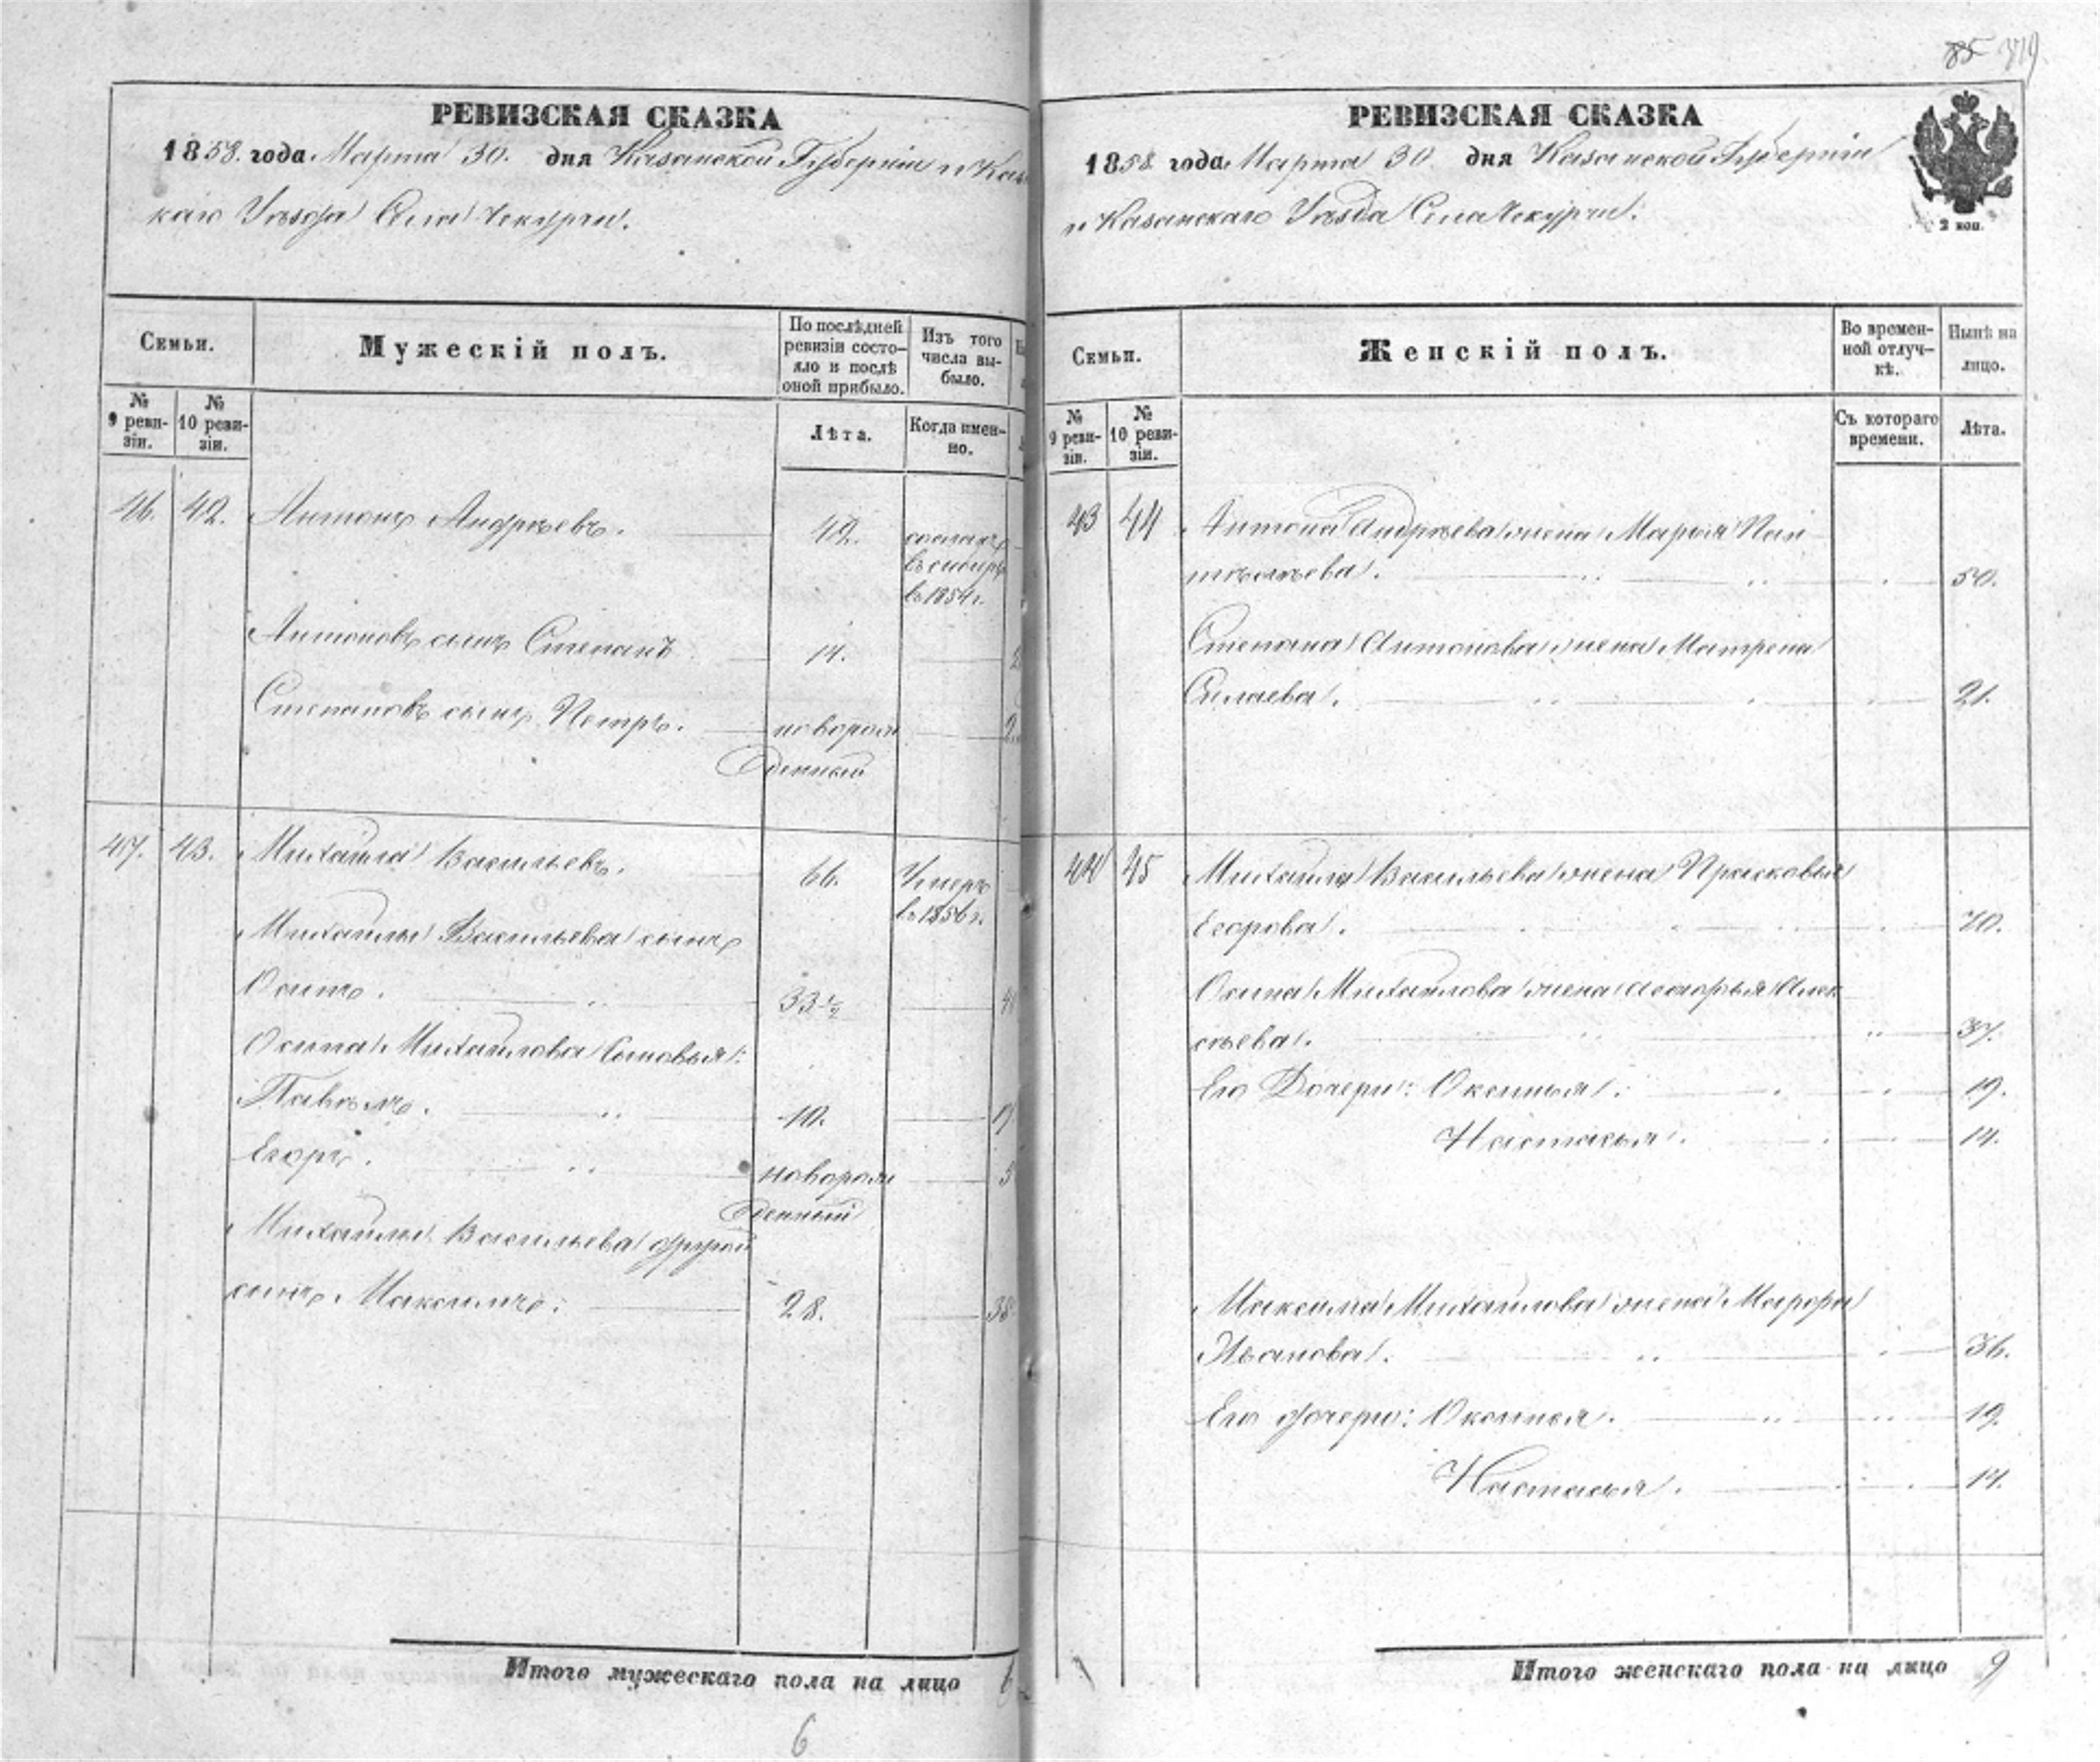 85 319
РЕВИЗСКАЯ СКАЗКА
1858. года Марта 30. дня Казанской Губерніи и Казан
каго Уѣзда Села Чекурчи.
Семьи.
Мужескій полъ.
По послѣдней ревизіи состо-
яло и послѣ
оной прибыло.
Изъ того
числа вы-
было.
№
9 реви-
зіи.
№
10 реви-
зіи.
Лѣта.
Когда имен-
но.
46. 42. Антонъ Андреевъ. 42. сосланъ
въ сибирь
в 1854 г.
Антоновъ сынъ Степанъ 14.
Степановъ сынъ Петръ. новорож
денный
47. 43. Михайла Васильевъ. 66. Умеръ
в 1856 г.
Михайлы Васильева сынъ
Осипъ. 33 ½
Осипа Михайлова Сыновья:
Павелъ. 10.
Егоръ. новорож 5
денный
Михайлы Васильева другой
сынъ Максимъ: 28. 38
Итого мужескаго пола на лицо 6
6
РЕВИЗСКАЯ СКАЗКА
1858 года Марта 30 дня Казанской Губерніи
и Казанскаго Уѣзда Села Чекурчи.
2 коп.
Семьи.
Женскій полъ.
Во времен-
ной отлуч-
кѣ.
Нынѣ на
лицо.
№
9 реви-
зіи.
№
10 реви-
зіи.
Съ котораго
времени.
Лѣта.
43 44 Антона Андреева жена Марья Пан
телѣева. 50.
Степана Антонова жена Матрена
Силаева. 21.
44 45 Михайлы Васильева жена Прасковья
Егорова. 70.
Осипа Михайлова жена Марья Алек
сѣева. 37.
Его Дочери: Оксинья. 19.
Настасья. 14.
Максима Михайлова жена Марфа
Иванова. 36.
Его дочери: Оксинья. 19.
Настасья. 14.
Итого женскаго пола на лицо 9